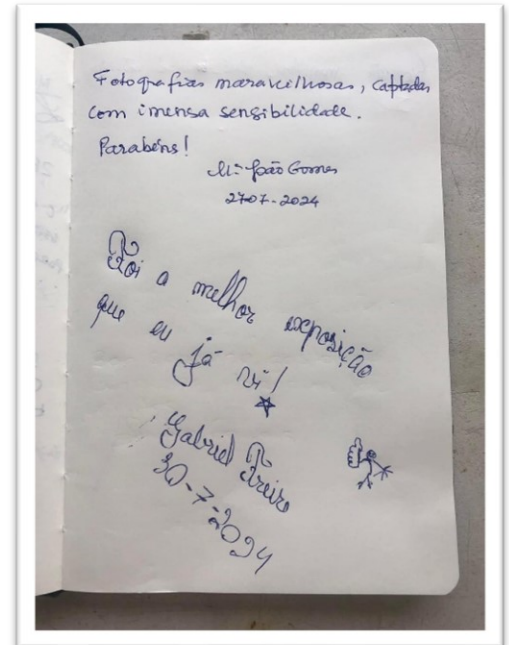 Fotografias maravilhosas, captadas
com imensa sensibilidade.
Parabéns!
Mª João Gomes
27-07-2024
Foi a melhor exposição
que eu já vi!
Gabriel Freire
30-7-2024